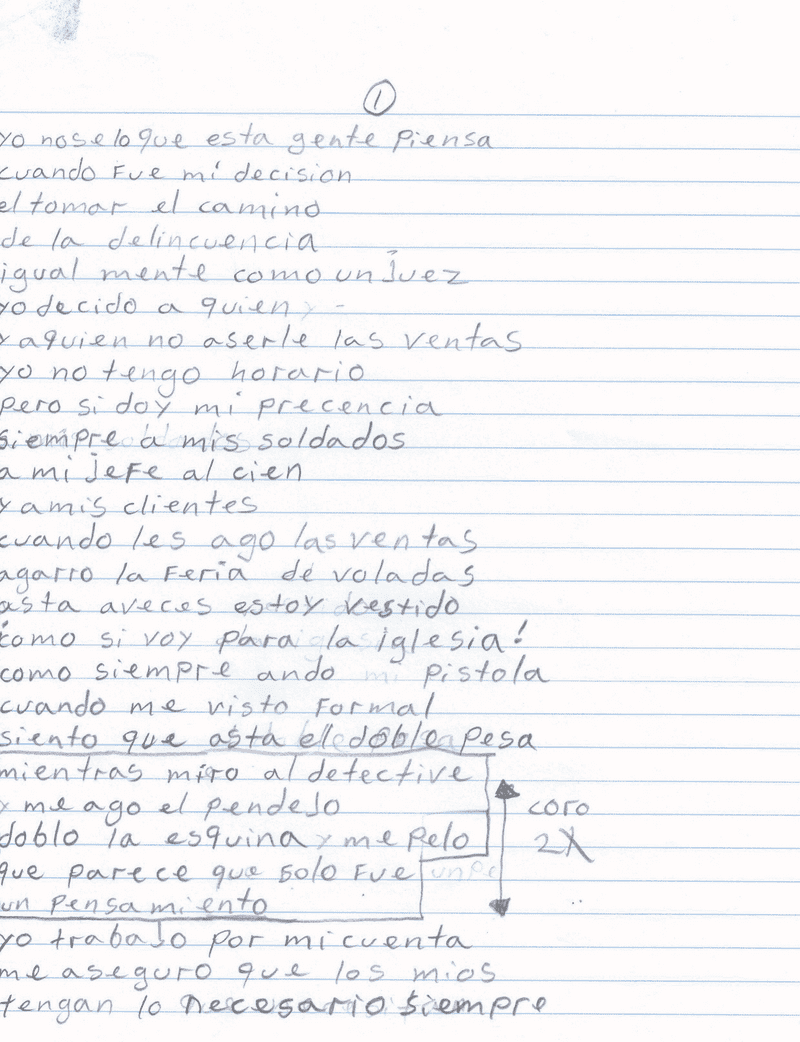 1
yo nose lo que esta gente piensa
cuando fue mi decision
el tomar el camino
de la delincuencia
igual mente como un Juez
yo decido a quien y -
y aquien no aserle las ventas
yo no tengo horario
pero si doy mi precencia
siempre a mis soldados
a mi jefe al cien
y amis clientes
cuando les ago las ventas
agarro la Feria de voladas
asta aveces estoy vestido
como si voy para la iglesia!
como siempre ando mi pistola
cuando me visto Formal
siento que asta el doble pesa
mientras miro al detective
y me ago el pendeJo
doblo la esquina y me pelo
que parece que solo Fue
un pensamiento
coro
2X
yo trabaJo por mi cuenta
me aseguro que los mios
tengan lo necesario siempre